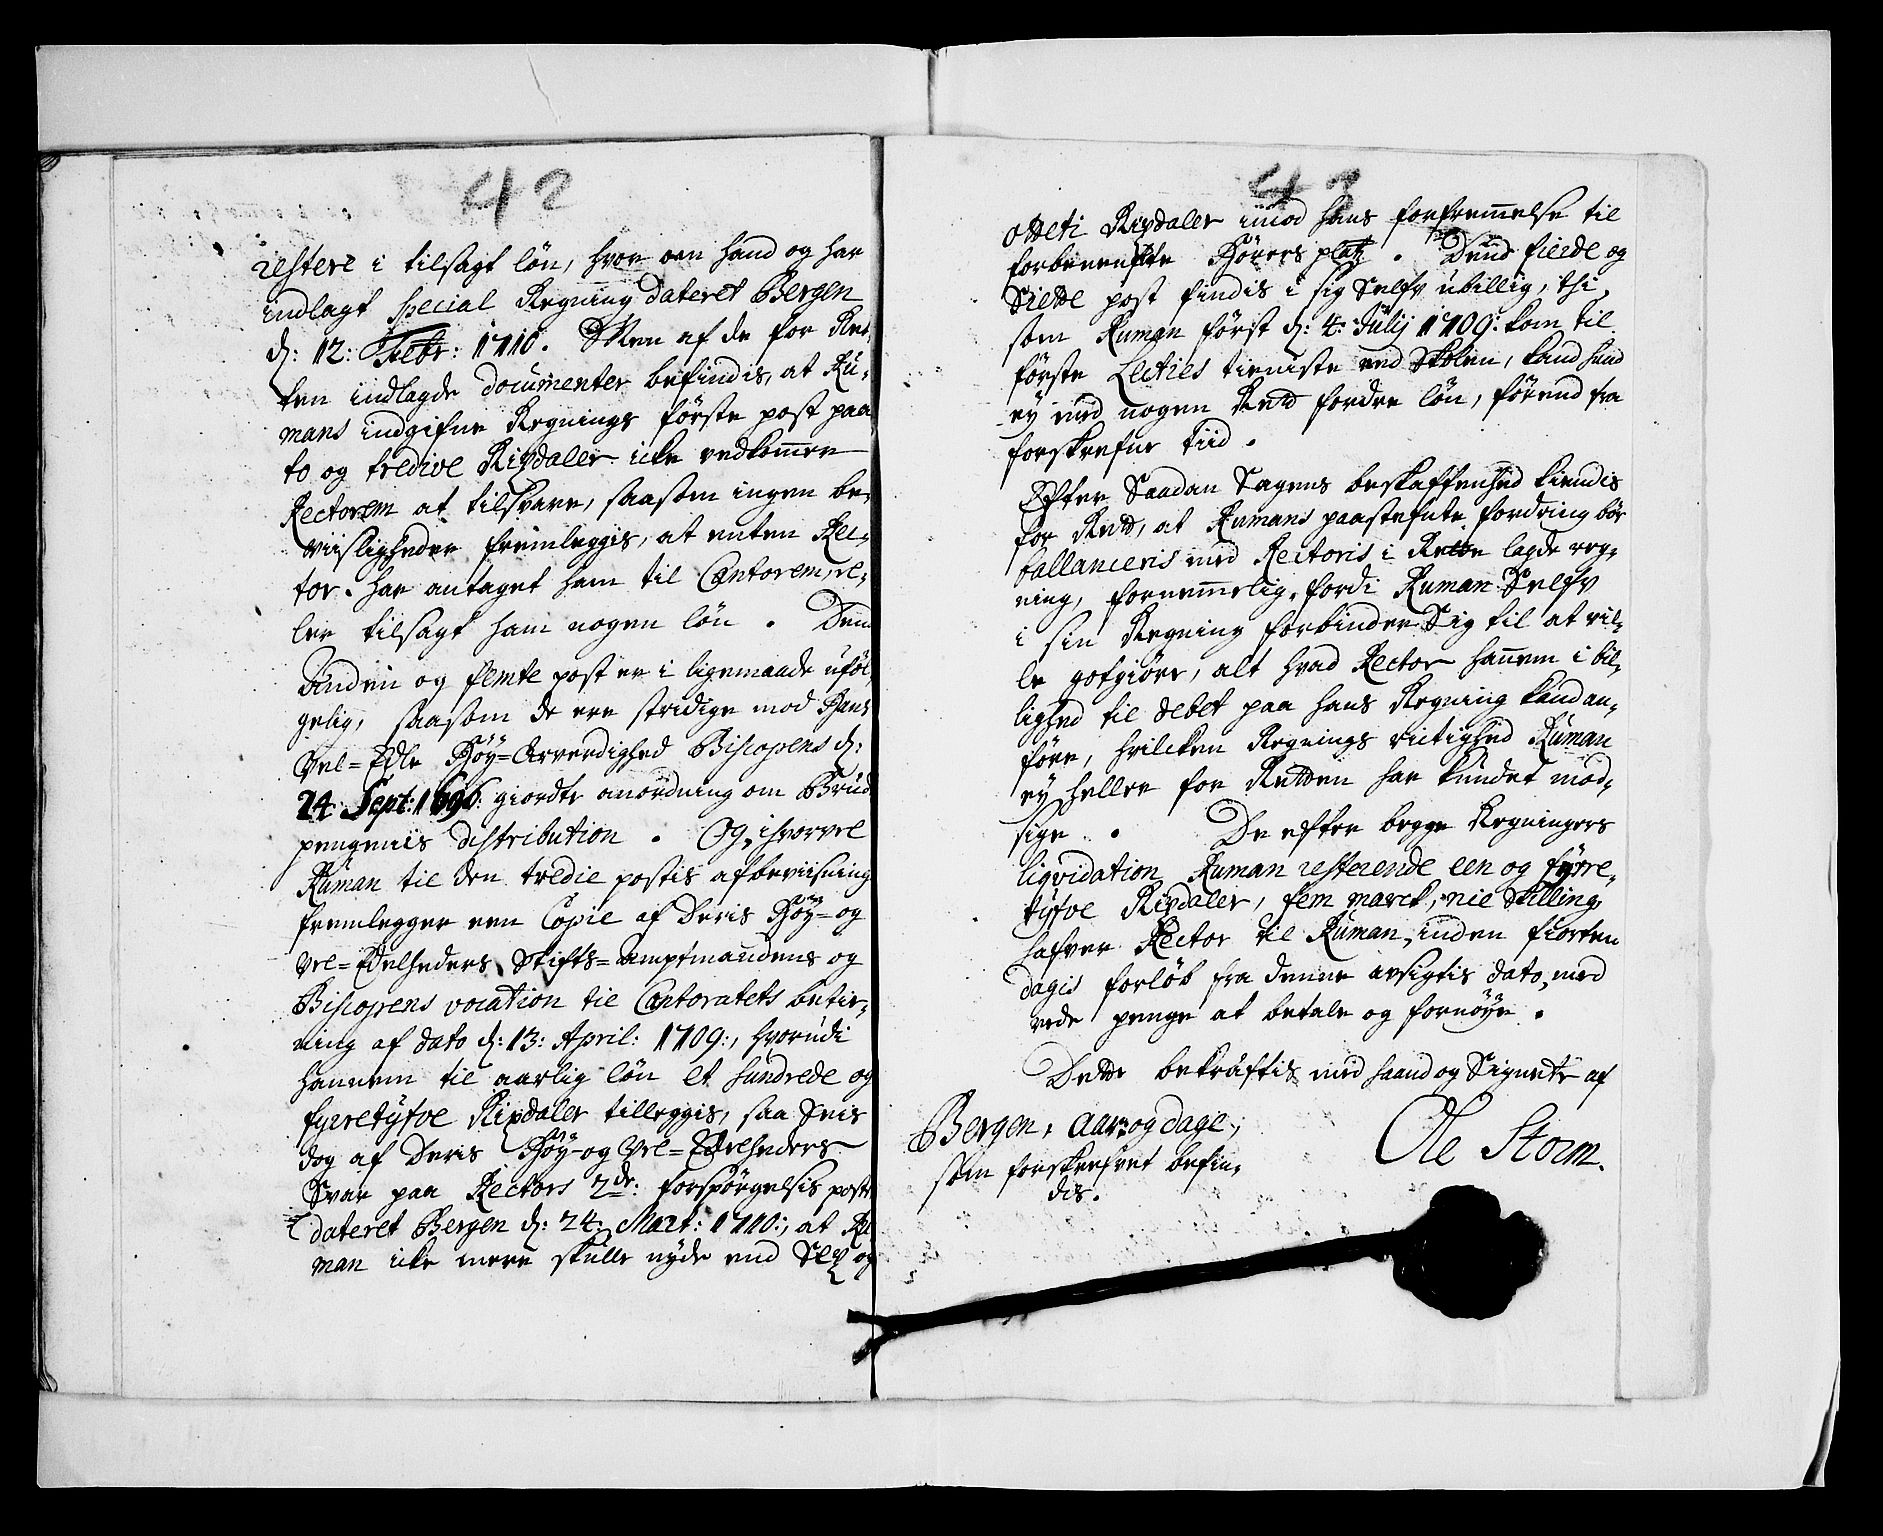 42
restere i tilsagt løn, hvor om hand og har
indlagt special Regning dateret Bergen
d: 12: Febr: 1710. Men af de for Ret-
ten indlagde documenter befindis, at Ru-
mans indgifne Regnings første post paa
to og tredive Rixdaler icke vedkommer
Rectorem at tilsvare, saasom ingen be-
viisligheder fremleggis, at enten Rec-
tor har antaget ham til Cantorem, el-
ler tilsagt ham nogen løn. Den
Anden og femte post er i ligemaade uføl-
gelig, saasom de ere stridige mod Hans
Vel-Edle Høy-Ærverdighed Biscopens d:
24. Sept: 1696: giordte anordning om Brud
pengenis distribution. Og, ihvorvel
Ruman til den tredie postis afbeviisning
fremlegger een Copie af Deris Høy- og
Vel-Edelheders Stifts-Amptmandens og
Biscopens vocation til Cantoratets betie-
ning af dato d: 13: April: 1709:, hvorudi
hannem til aarlig løn et hundrede og
fyrretyfve Rixdaler tilleggis, saa
dog af Deris Høy- og Vel-Edelheders
Svar paa Rectors 2de: forspørgelsis post
dateret Bergen d: 24: Mart: 1710:, at Ru
man icke mere skulle nyde end Sex og
43
otteti Rixdaler imod hans forfremmelse til
forbenenfte Hørers platz. Dend fierde og
Siette post findis i sig Selfv ubillig, thi
som Ruman først d: 4: Julij 1709: kom til
første Lecties tieniste ved Skolen, kand hand
ey med nogen Rett fordre løn, førend fra
forskrefne tiid.
Efter Saadan Sagens beskaffenhed kiendis
for Rett, at Rumans paastefnte fordring bør
ballanceris med Rectoris i Rette lagde reg-
ning, fornemmelig, fordi Ruman Selfv
i sin Regning forbinder Sig til at vil-
le gotgiøre, alt hvad Rector hannem i bil-
lighed til debet paa hans Regning kand an-
føre, hvilcken Regnings rictighed Ruman
ey heller for Retten har kundet mod-
sige. De efter begge Regningers
liqvidation Ruman resterende een og fyrre-
tyfve Rixdaler, fem marck, nie Skilling,
hafver Rector til Ruman, inden fiorten
dagis forløb fra denne avsigtis dato, med
rede penge at betale og fornøye.
Dette bekræftis med haand og Signete af
Bergen, Aar og dage,
som forskrefvet befin-
dis.
Ole Storm.